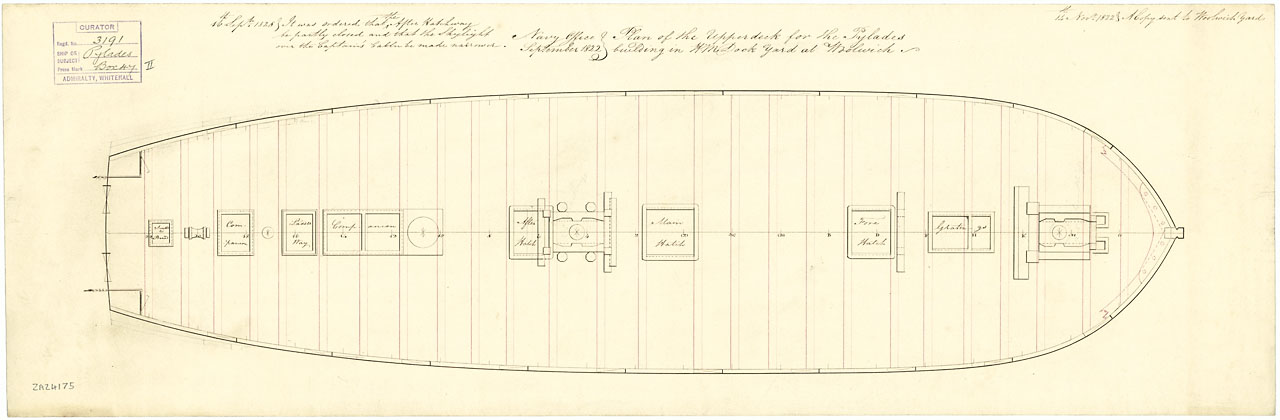 CURATOR
Regd. No. 3191
SHIP OR SUBJECT: Pylades
Press Mark Box 47 II
ADMIRALTY, WHITEHALL
16th Septr. 1824 } It was ordered that the After Hatchway
be partly closed and that the Skylight
over the Captain's Cabin be made narrower.
Navy Office } Plan of the Upperdeck for the Pylades
September 1822 } building in HM Dock Yard at Woolwich
12th Novr. 1822 } A Copy sent to Woolwich Yard
Com-
panion
Comp
anion
After
Hatch
Main
Hatch
Fore
Hatch
Gratin gs
ZAZ4175